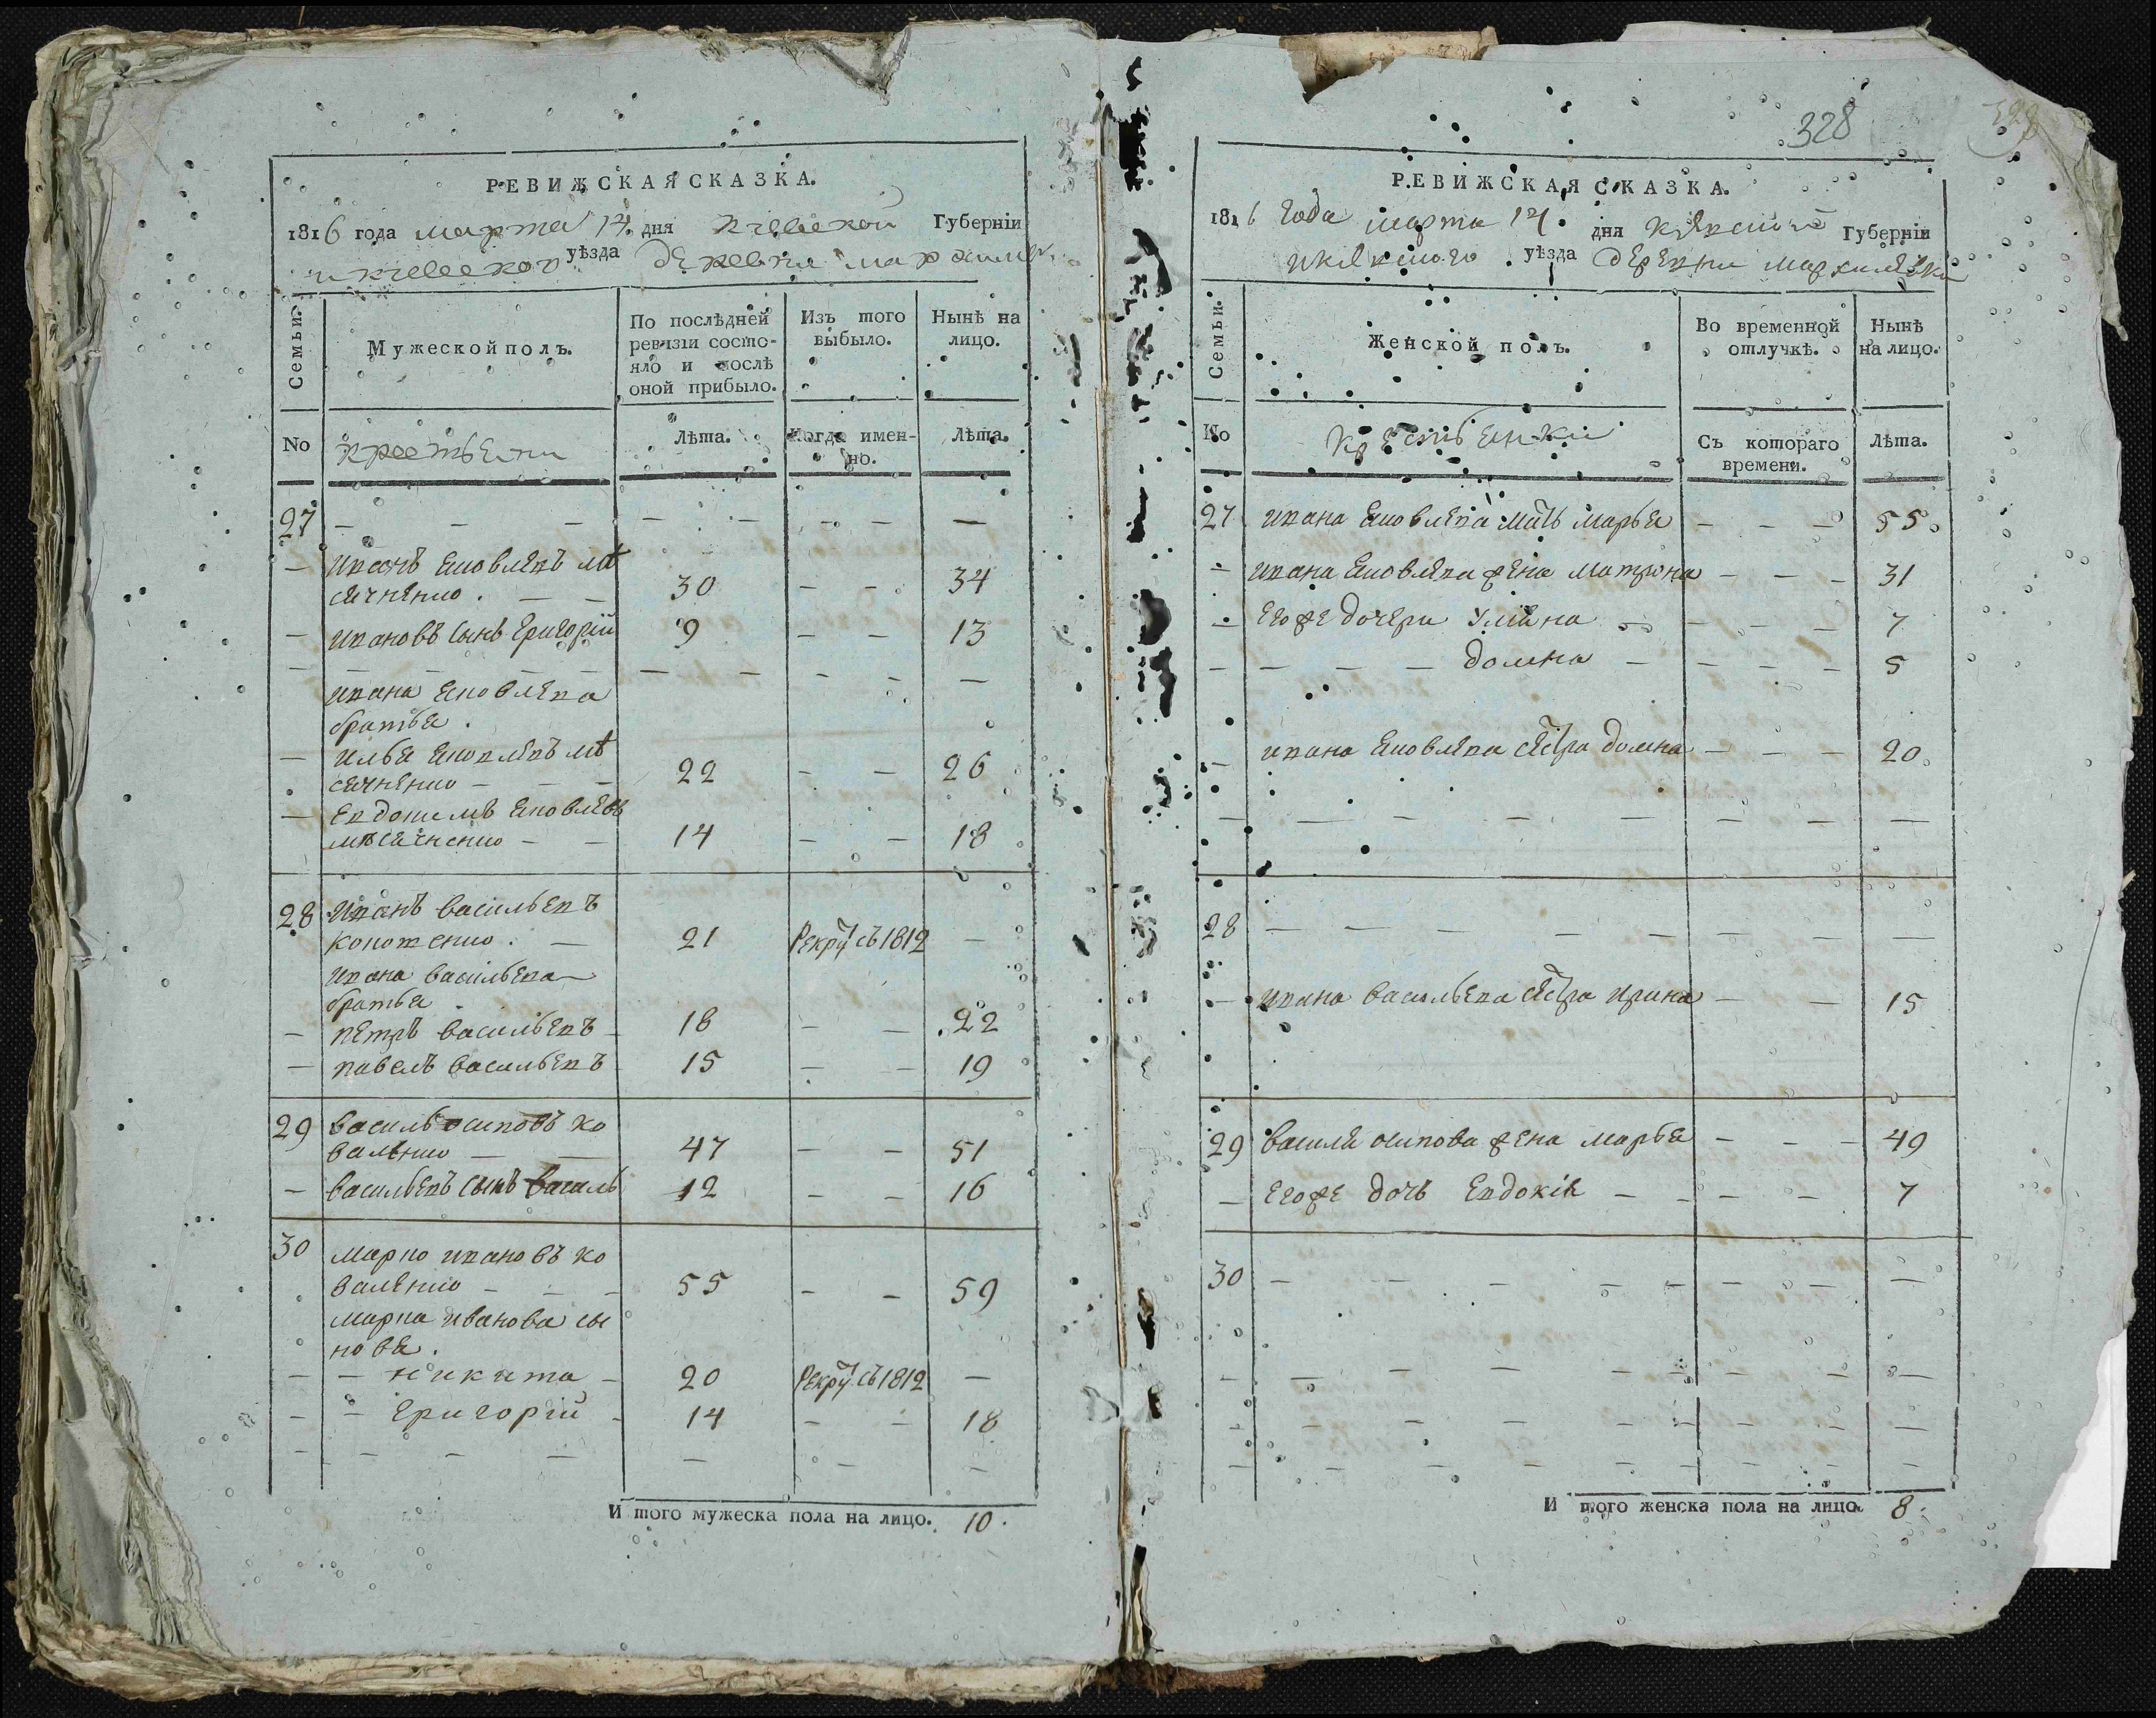 РЕВИЖСКАЯ СКАЗКА.
1816 года марта 14. дня Киевской Губерніи
и киевского уѣзда деревни
Семьи.
Мужеской полъ.
По послѣдней ревизіи состояло и послѣ оной прибыло.
Изъ того выбыло.
Нынѣ на лицо.
No
крестьяни
Лѣта.
Когда именно.
Лѣта.
27 — — — — — — — —
— Иванъ Яковлевъ мѣ
сячненко. — — 30 — — 34
— Ивановъ сынъ Григорій 9 — — 13
— — — — — — — — — —
Ивана Яковлева
братья.
— Илья Яковлевъ мѣ
сячненко — — — 22 — — 26
— Евдокимъ Яковлевъ
мѣсячненко — — 14 — — 18
28 Иванъ Васильевъ
Кононенко. — 21 Рекрут съ 1812 —
Ивана Васильева
братья
— Петръ Васильевъ — 18 — — 22
— Павелъ Васильевъ 15 — — 19
29 Василь Осиповъ Ко
валенко — — 47 — — 51
— Васильевъ сынъ Василь 12 — — 16
30 Марко Ивановъ Ко
валенко — — — 55 — — 59
Марка Иванова сы
новя.
— — Никита — 20 Рекрут съ 1812 —
— — Григорій — 14 — — 18
— — — — — — —
И того мужеска пола на лицо. 10.
328
РЕВИЖСКАЯ СКАЗКА.
1816 года марта 14. дня Киевской Губерніи
и Киевского уѣзда деревни
Семьи.
Женской полъ.
Во временной отлучкѣ.
Нынѣ на лицо.
No
Крестьянки
Съ котораго времени.
Лѣта.
27 Ивана Яковлева мать Марья — — — 55.
— Ивана Яковлева жена Матрона — — — 31
— Его же дочери Уліяна — — — — 7
— — — — Домна — — — — — 5
— Ивана Яковлева сестра Домна — — — 20.
— — — — — — — — — —
28 — — — — — — — — —
— Ивана Васильева сестра Ирина — — 15
29 Василя Осипова жена Марья — — — 49
— Его же дочь Евдокія — — — — 7
30 — — — — — — — — —
— — — — — — — — —
— — — — — — — — —
— — — — — — — — —
И того женска пола на лицо 8.